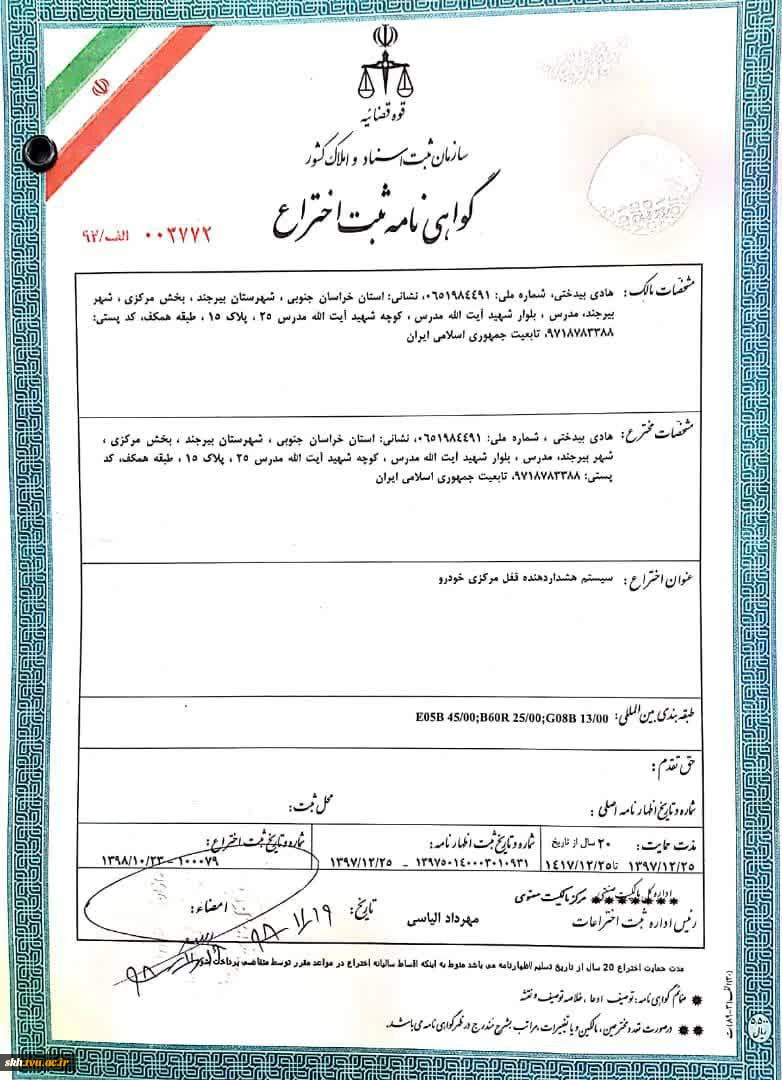 قوه قضائیه
سازمان ثبت اسناد و املاک کشور
گواهی نامه ثبت اختراع
۰۰۲۷۷۲ الف/۹۲
مشخصات مالک: هادی بیدختی، شماره ملی: ۰۶۵۱۹۸۴۴۹۱، نشانی: استان خراسان جنوبی ، شهرستان بیرجند ، بخش مرکزی ، شهر
بیرجند، مدرس ، بلوار شهید آیت الله مدرس ، کوچه شهید آیت الله مدرس ۲۵ ، پلاک ۱۵ ، طبقه همکف، کد پستی:
۹۷۱۸۷۸۳۳۸۸، تابعیت جمهوری اسلامی ایران
مشخصات مخترع: هادی بیدختی ، شماره ملی: ۰۶۵۱۹۸۴۴۹۱، نشانی: استان خراسان جنوبی ، شهرستان بیرجند ، بخش مرکزی ،
شهر بیرجند، مدرس ، بلوار شهید آیت الله مدرس ، کوچه شهید آیت الله مدرس ۲۵ ، پلاک ۱۵ ، طبقه همکف، کد
پستی: ۹۷۱۸۷۸۳۳۸۸، تابعیت جمهوری اسلامی ایران
عنوان اختراع: سیستم هشداردهنده قفل مرکزی خودرو
طبقه بندی بین المللی: E05B 45/00;B60R 25/00;G08B 13/00
حق تقدم:
شماره و تاریخ اظهار نامه اصلی: محل ثبت:
مدت حمایت: ۲۰ سال از تاریخ
۱۳۹۷/۱۲/۲۵ تا ۱۴۱۷/۱۲/۲۵
شماره و تاریخ ثبت اظهار نامه:
۱۳۹۷۵۰۱۴۰۰۰۳۰۱۰۹۳۱ - ۱۳۹۷/۱۲/۲۵
شماره و تاریخ ثبت اختراع:
۱۰۰۰۷۹ - ۱۳۹۸/۱۰/۲۳
اداره کل مالکیت صنعتی مرکز مالکیت معنوی
رئیس اداره ثبت اختراعات مهرداد الیاسی تاریخ: ۹۸/۱۱/۱۹ امضاء:
مدت حمایت اختراع 20 سال از تاریخ تسلیم اظهارنامه می باشد منوط به اینکه اقساط سالیانه اختراع در مواعد مقرر توسط متقاضی پرداخت شود.
✹ ضمائم گواهی نامه: توصیف ، ادعا ، خلاصه توصیف و نقشه
✹✹ در صورت تعدد مخترعین، مالکین و یا تغییرات، مراتب بشرح مندرج در ظهر گواهی نامه می باشد.
۵۵۰ سال
skh.tvu.ac.ir